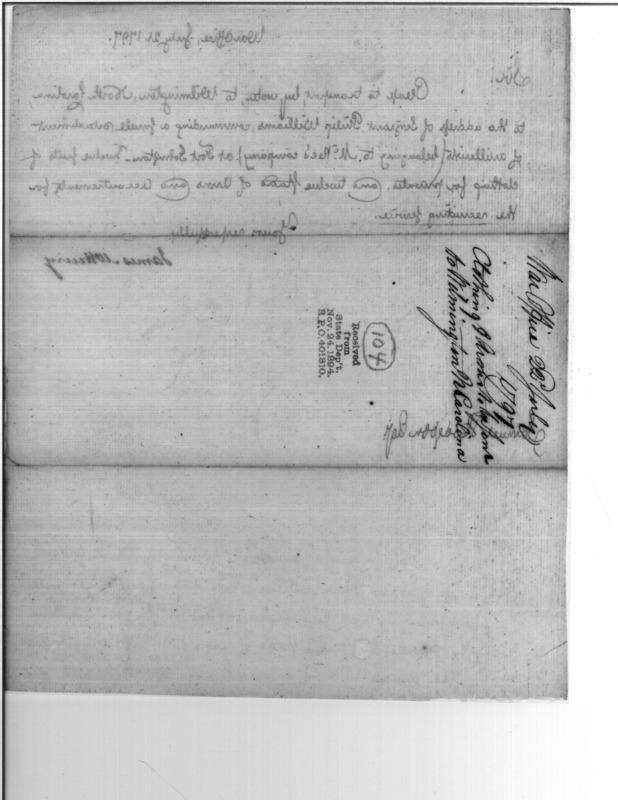 War Office July 21 1797.
Sir,
Please to transport, by water, to Wilmington, North Carolina
to the address of Serjeant Philip Williams commanding a small detachment
of artillerists (belonging to, McRea's company) at Fort Johnston- Twelve suits of
clothing for privates, and twelve setts of Arms and accoutrements for
the recruiting service.
Yours respectfully
James McHenry
War Office 22 July
1797
Clothing &
to Wilmington N Carolina
104
Received
from
State Dep't.
Nov. 24. 1894.
R.P.O. 401810.